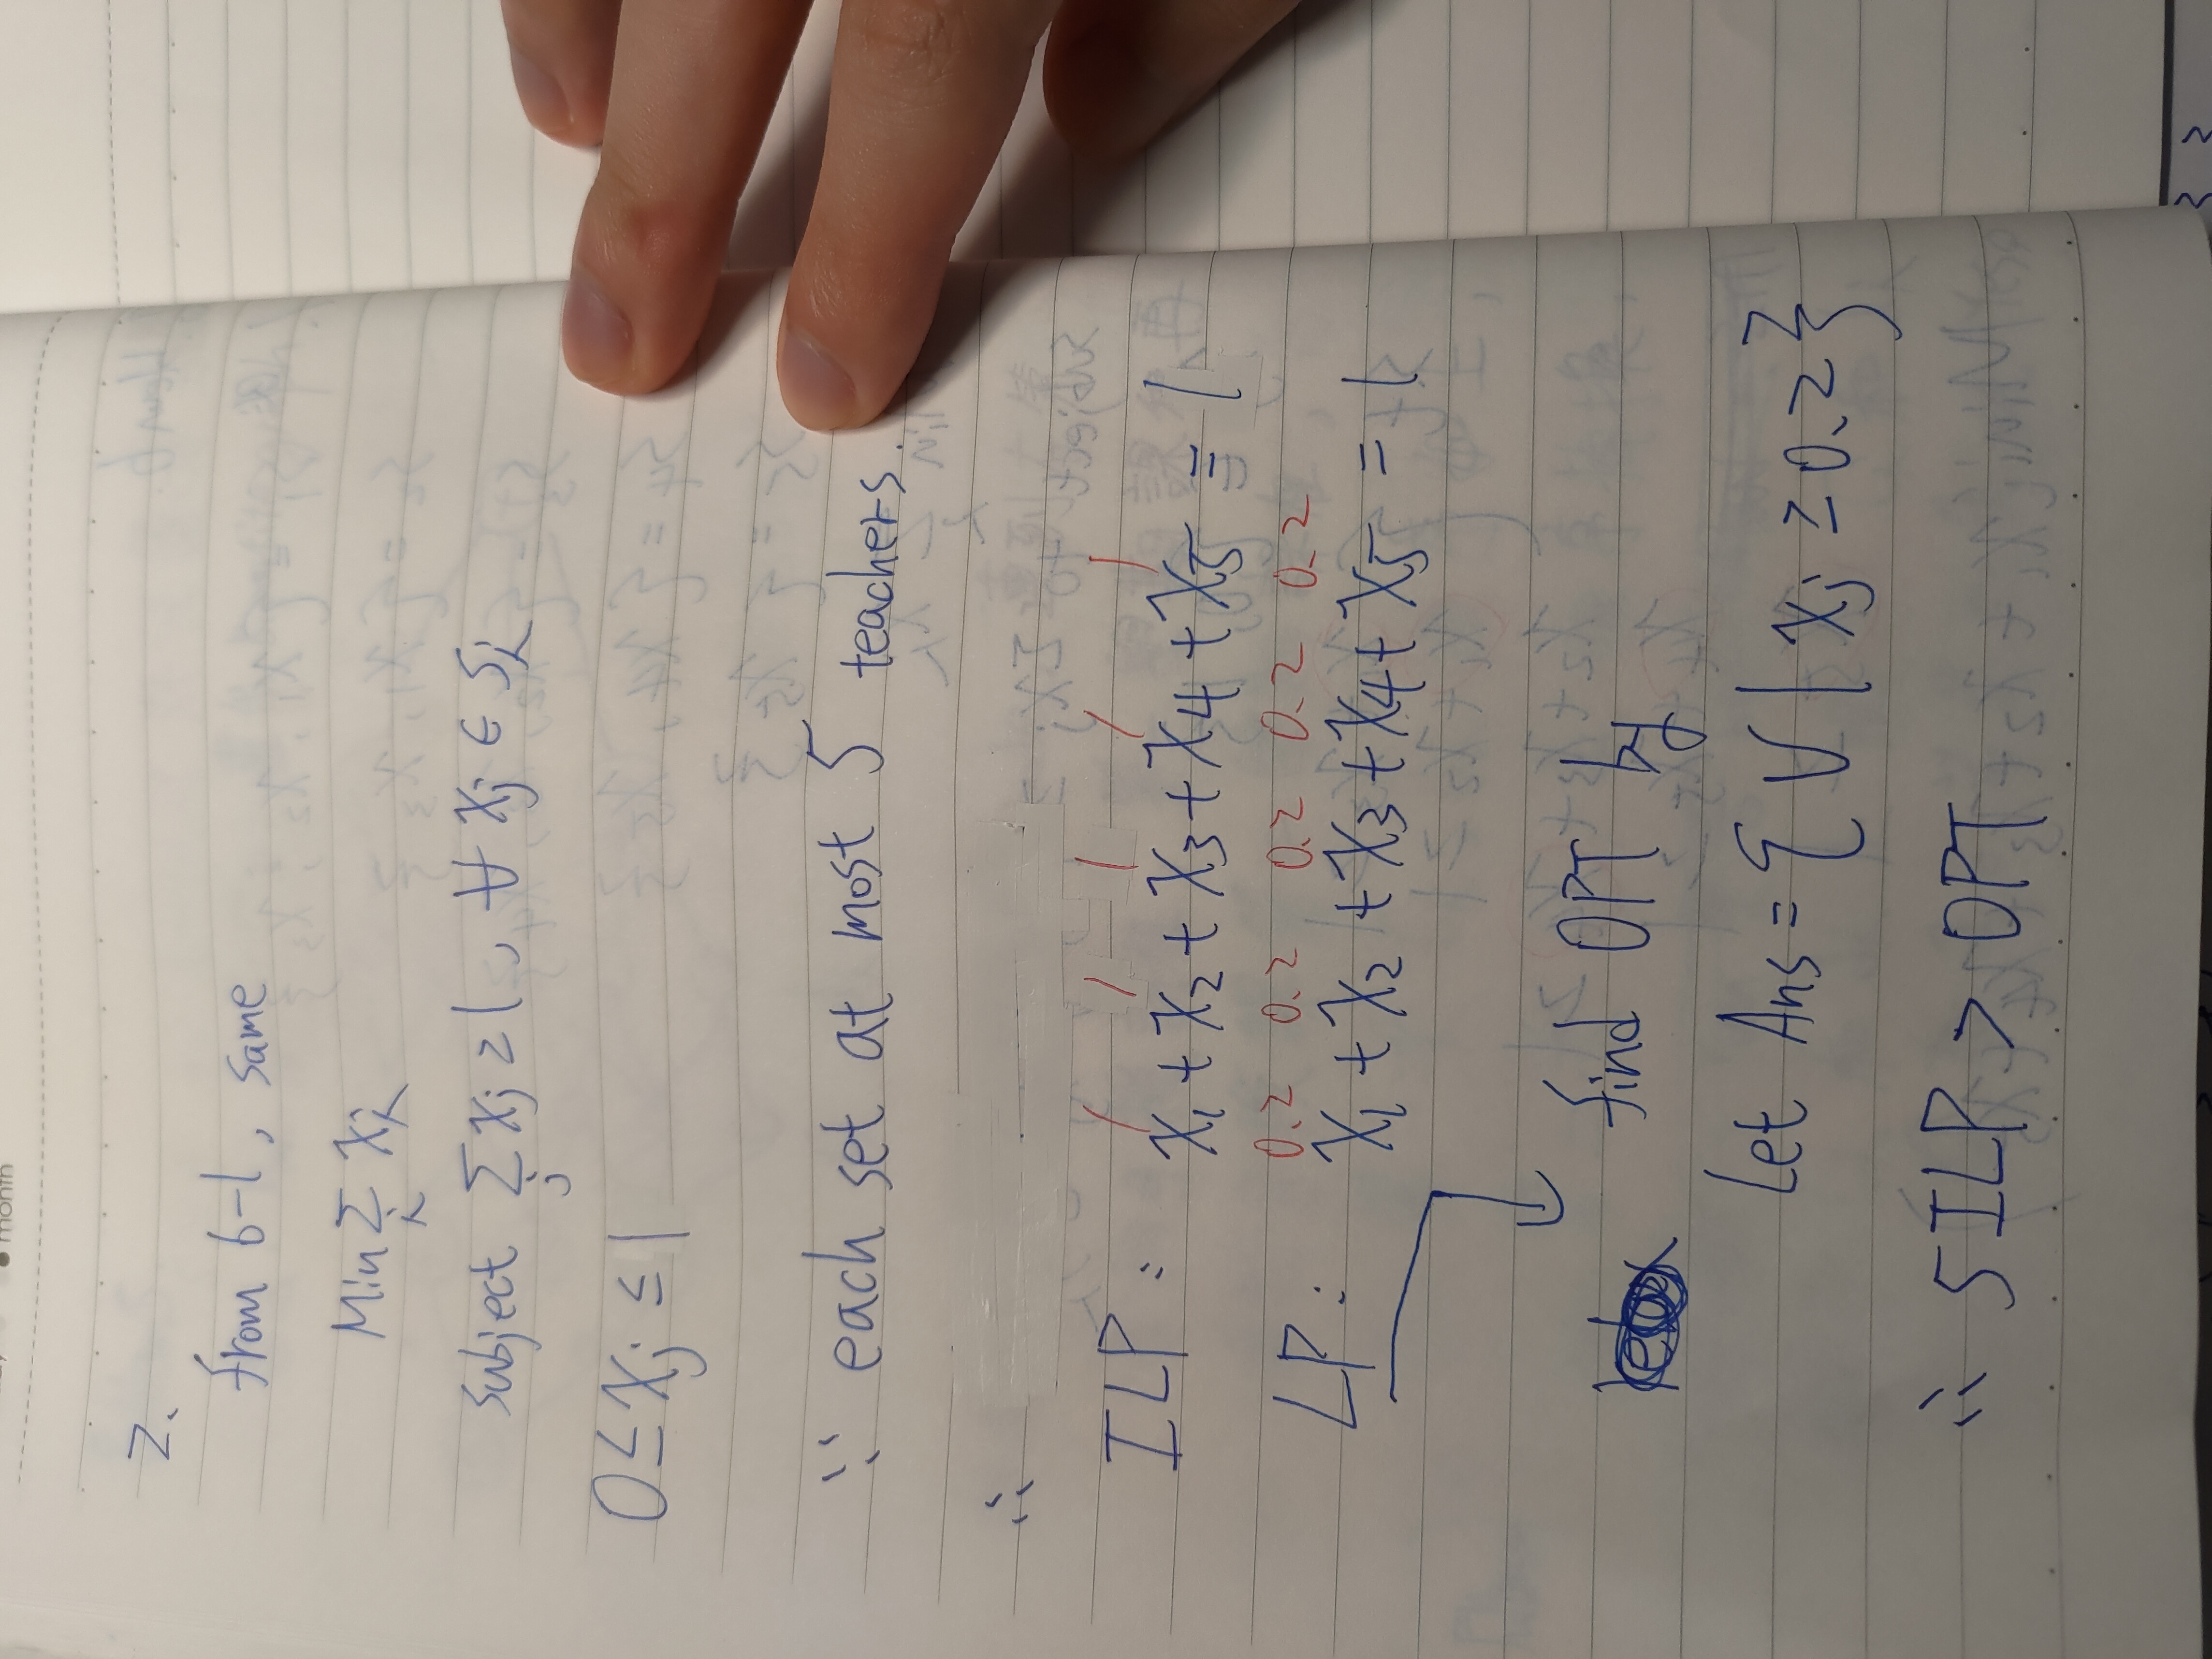 month
2、
from 6-1, same
Min Σ_i x_i
Subject Σ_j x_j ≥ 1, ∀ x_j ∈ S_i
0 ≤ x_j ≤ 1
∵ each set at most 5 teachers.
∴
1 1 1 1 1
ILP: x_1 + x_2 + x_3 + x_4 + x_5 = 1
0.2 0.2 0.2 0.2 0.2
LP: x_1 + x_2 + x_3 + x_4 + x_5 = 1
find OPT by
Let Ans = { V | x_j ≥ 0.2 }
∴ 5ILP > OPT